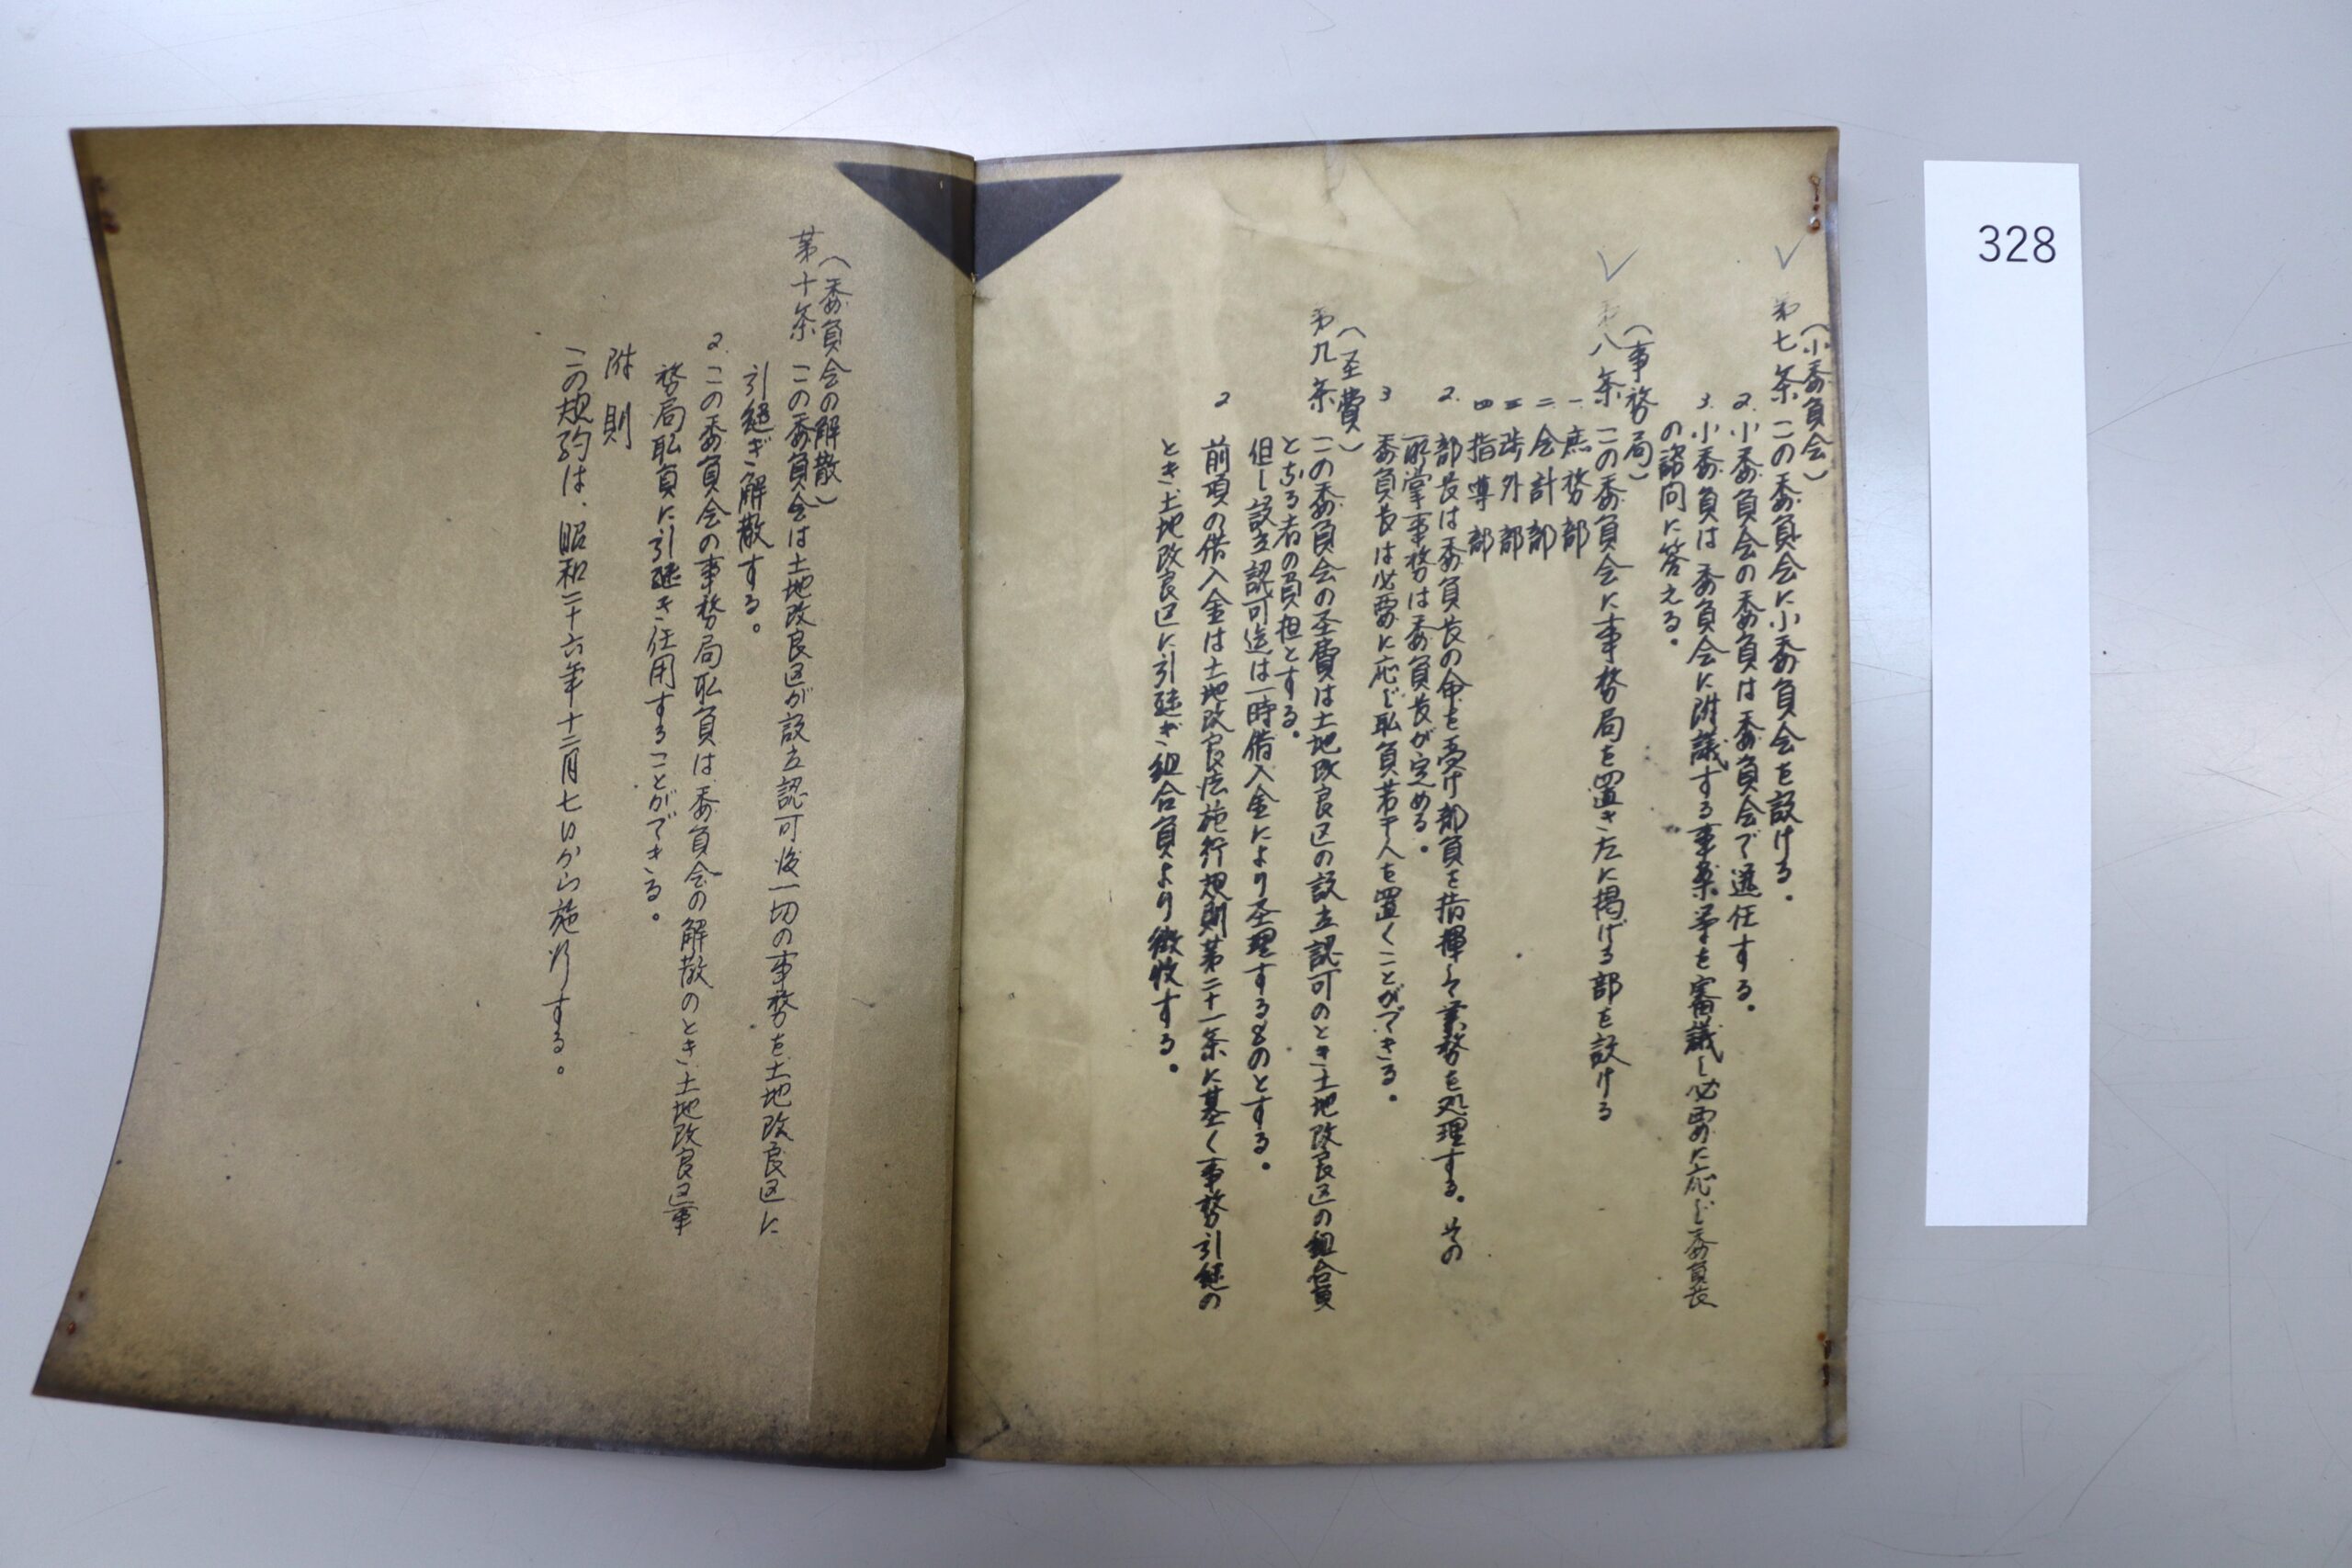 328
(小委員会)
第七条 この委員会に小委員会を設ける。
2. 小委員会の委員は委員会で選任する。
3. 小委員は委員会に附議する事案等を審議し必要に応じ委員長
の諮問に答える。
(事務局)
第八条 この委員会に事務局を置き左に掲げる部を設ける
一 庶務部
二 会計部
三 渉外部
四 指導部
2. 部長は委員長の命を受け部員を指揮して業務を処理する。その
所掌事務は委員長が定める。
3 委員長は必要に応じ職員若干人を置くことができる。
(圣費)
第九条 この委員会の圣費は土地改良区の設立認可のとき土地改良区の組合員
となる者の負担とする。
但し設立認可迄は一時借入金により圣理するものとする。
2 前項の借入金は土地改良法施行規則第二十一条に基く事務引継の
とき土地改良区に引継ぎ組合員より徴收する。
(委員会の解散)
第十条 この委員会は土地改良区が設立認可後一切の事務を土地改良区に
引継ぎ解散する。
2. この委員会の事務局职員は委員会の解散のとき土地改良区事
務局职員に引継き任用することができる。
附則
この規約は、昭和二十六年十二月七日から施行する。